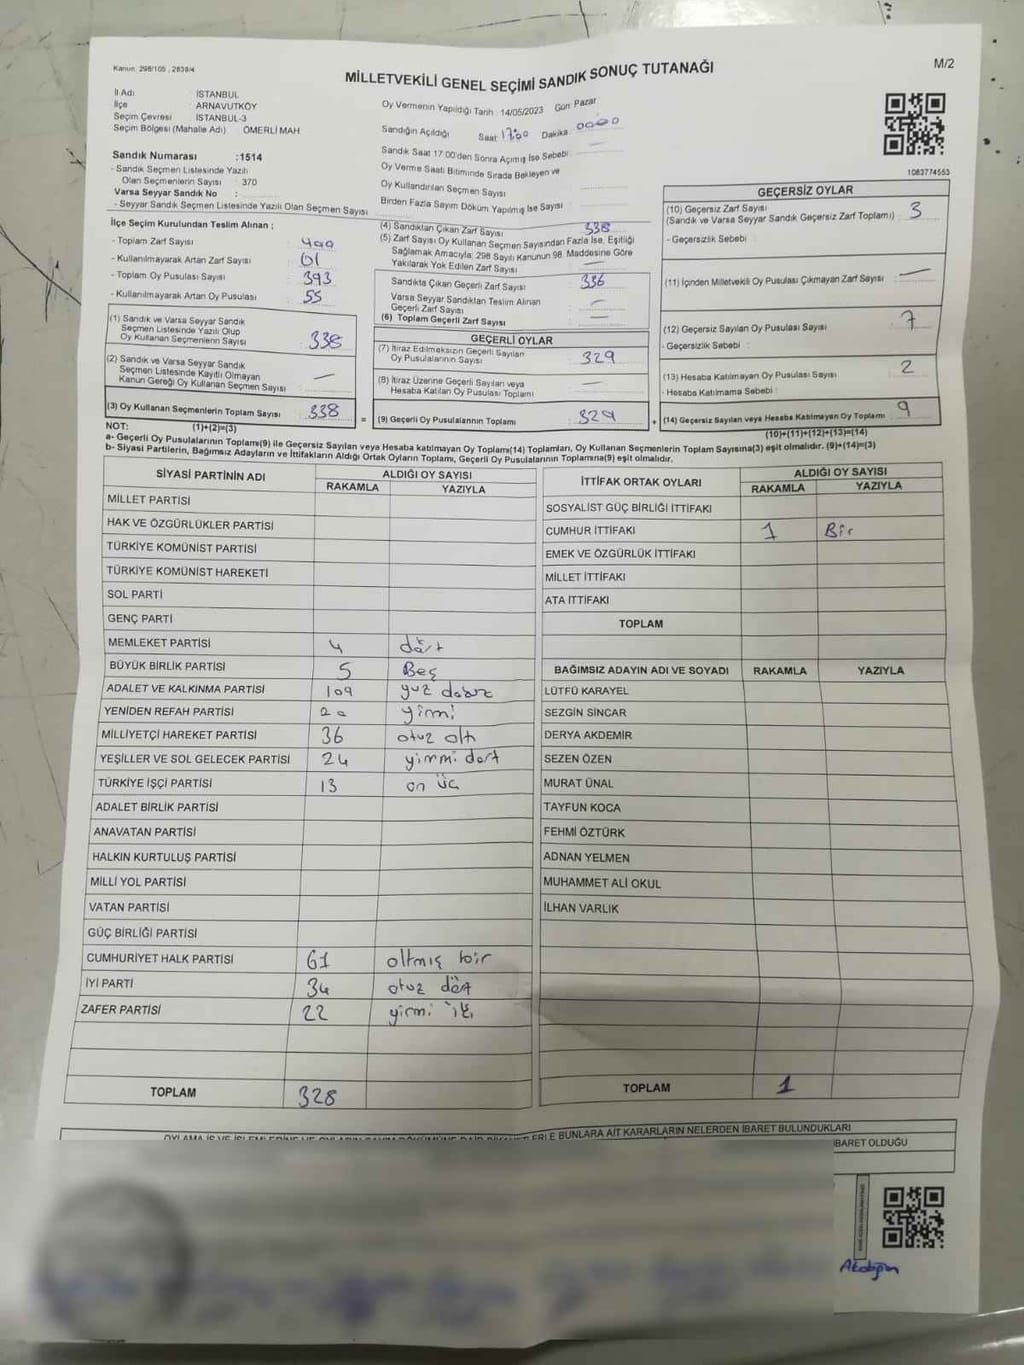 Kanun, 298/105 , 2839/4
MİLLETVEKİLİ GENEL SEÇİMİ SANDIK SONUÇ TUTANAĞI
M/2
İl Adı İSTANBUL
İlçe ARNAVUTKÖY
Seçim Çevresi İSTANBUL-3
Seçim Bölgesi (Mahalle Adı) ÖMERLİ MAH
Sandık Numarası :1514
- Sandık Seçmen Listesinde Yazılı
Olan Seçmenlerin Sayısı : 370
Varsa Seyyar Sandık No :
- Seyyar Sandık Seçmen Listesinde Yazılı Olan Seçmen Sayısı
Oy Vermenin Yapıldığı Tarih : 14/05/2023 Gün Pazar
Sandığın Açıldığı Saat 17:00 Dakika
Sandık Saat 17.00'den Sonra Açılmış İse Sebebi
Oy Verme Saati Bitiminde Sırada Bekleyen ve
Oy Kullandırılan Seçmen Sayısı
Birden Fazla Sayım Döküm Yapılmış İse Sayısı
1083774553
İlçe Seçim Kurulundan Teslim Alınan :
- Toplam Zarf Sayısı : 400
- Kullanılmayarak Artan Zarf Sayısı : 61
- Toplam Oy Pusulası Sayısı : 393
- Kullanılmayarak Artan Oy Pusulası : 55
(1) Sandık ve Varsa Seyyar Sandık
Seçmen Listesinde Yazılı Olup
Oy Kullanan Seçmenlerin Sayısı : 338
(2) Sandık ve Varsa Seyyar Sandık
Seçmen Listesinde Kayıtlı Olmayan
Kanun Gereği Oy Kullanan Seçmen Sayısı : —
(3) Oy Kullanan Seçmenlerin Toplam Sayısı : 338
(1)+(2)=(3)
(4) Sandıktan Çıkan Zarf Sayısı 338
(5) Zarf Sayısı Oy Kullanan Seçmen Sayısından Fazla İse, Eşitliği
Sağlamak Amacıyla; 298 Sayılı Kanunun 98. Maddesine Göre
Yakılarak Yok Edilen Zarf Sayısı —
Sandıkta Çıkan Geçerli Zarf Sayısı 336
Varsa Seyyar Sandıktan Teslim Alınan
Geçerli Zarf Sayısı —
(6) Toplam Geçerli Zarf Sayısı —
GEÇERLİ OYLAR
(7) İtiraz Edilmeksizin Geçerli Sayılan
Oy Pusulalarının Sayısı : 329
(8) İtiraz Üzerine Geçerli Sayılan veya
Hesaba Katılan Oy Pusulaların Toplamı : —
= (9) Geçerli Oy Pusulalarının Toplamı : 329
GEÇERSİZ OYLAR
(10) Geçersiz Zarf Sayısı
(Sandık ve Varsa Seyyar Sandık Geçersiz Zarf Toplamı) : 3
- Geçersizlik Sebebi
(11) İçinden Milletvekili Oy Pusulası Çıkmayan Zarf Sayısı : —
(12) Geçersiz Sayılan Oy Pusulası Sayısı : 7
- Geçersizlik Sebebi :
(13) Hesaba Katılmayan Oy Pusulası Sayısı : 2
- Hesaba Katılmama Sebebi :
+ (14) Geçersiz Sayılan veya Hesaba Katılmayan Oy Toplamı : 9
(10)+(11)+(12)+(13)=(14)
NOT:
a- Geçerli Oy Pusulalarının Toplamı(9) ile Geçersiz Sayılan veya Hesaba katılmayan Oy Toplamı(14) Toplamları, Oy Kullanan Seçmenlerin Toplam Sayısına(3) eşit olmalıdır. (9)+(14)=(3)
b- Siyasi Partilerin, Bağımsız Adayların ve İttifakların Aldığı Ortak Oyların Toplamı, Geçerli Oy Pusulalarının Toplamına(9) eşit olmalıdır.
SİYASİ PARTİNİN ADI ALDIĞI OY SAYISI
RAKAMLA YAZIYLA
MİLLET PARTİSİ
HAK VE ÖZGÜRLÜKLER PARTİSİ
TÜRKİYE KOMÜNİST PARTİSİ
TÜRKİYE KOMÜNİST HAREKETİ
SOL PARTİ
GENÇ PARTİ
MEMLEKET PARTİSİ 4 dört
BÜYÜK BİRLİK PARTİSİ 5 Beş
ADALET VE KALKINMA PARTİSİ 109 yuz dokuz
YENİDEN REFAH PARTİSİ 20 yirmi
MİLLİYETÇİ HAREKET PARTİSİ 36 otuz altı
YEŞİLLER VE SOL GELECEK PARTİSİ 24 yirmi dört
TÜRKİYE İŞÇİ PARTİSİ 13 on üç
ADALET BİRLİK PARTİSİ
ANAVATAN PARTİSİ
HALKIN KURTULUŞ PARTİSİ
MİLLİ YOL PARTİSİ
VATAN PARTİSİ
GÜÇ BİRLİĞİ PARTİSİ
CUMHURİYET HALK PARTİSİ 61 altmış bir
İYİ PARTİ 34 otuz dört
ZAFER PARTİSİ 22 yirmi iki
TOPLAM 328
İTTİFAK ORTAK OYLARI ALDIĞI OY SAYISI
RAKAMLA YAZIYLA
SOSYALİST GÜÇ BİRLİĞİ İTTİFAKI
CUMHUR İTTİFAKI 1 Bir
EMEK VE ÖZGÜRLÜK İTTİFAKI
MİLLET İTTİFAKI
ATA İTTİFAKI
TOPLAM
BAĞIMSIZ ADAYIN ADI VE SOYADI RAKAMLA YAZIYLA
LÜTFÜ KARAYEL
SEZGİN SİNCAR
DERYA AKDEMİR
SEZEN ÖZEN
MURAT ÜNAL
TAYFUN KOCA
FEHMİ ÖZTÜRK
ADNAN YELMEN
MUHAMMET ALİ OKUL
İLHAN VARLIK
TOPLAM 1
BUNLARA AİT KARARLARIN NELERDEN İBARET BULUNDUKLARI
İBARET OLDUĞU